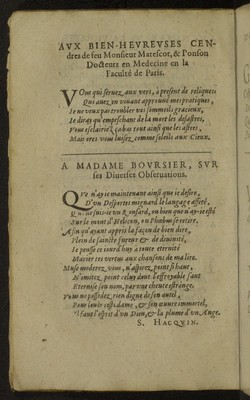 AVX BIEN-HEVREVSES CEN-
dres de feu Monsieur Marescot, & Ponson
Docteurs en Medecine en la
Faculté de Paris.
VOus qui servez aux vers, à present de reliques
Qui avez en vivant approuvé mes pratiques,
Je ne veux pas troubler vos sommeils gracieux,
Je diray qu'empeschant de la mort les desastres,
Vous esclairiez çà bas tout ainsi que les astres,
Mais ores vous luisez, comme soleils aux Cieux.
A MADAME BOVRSIER, SVR
ses Diverses Observations.
QVe n'ay-je maintenant ainsi que je desire,
D'vn Desportes mignard le langage affeté,
Qu ne suis-je vn Ronsard, ou bien que n'ay-je esté
Sur le mont d'Helicon, en Phœbus
Afin qu'ayant appris la façon de bien dire,
Plein de saincte fureur & de divinité,
Je peusse ce jourd'huy à toute eternité
Marier tes vertus aux chansons de ma lire.
Muse moderez vous, n'aspirez, point si haut,
N'imitez, point celuy dont l'effroyable saut
Eternise son nom, par vne cheute estrange.
Vous ne possedez, rien digne de son autel,
Pour louër ceste dame, & son œuvre immortel,
Il faut l'esprit d'vn Dieu, & la plume d'vn Ange.
S. HACQVIN.